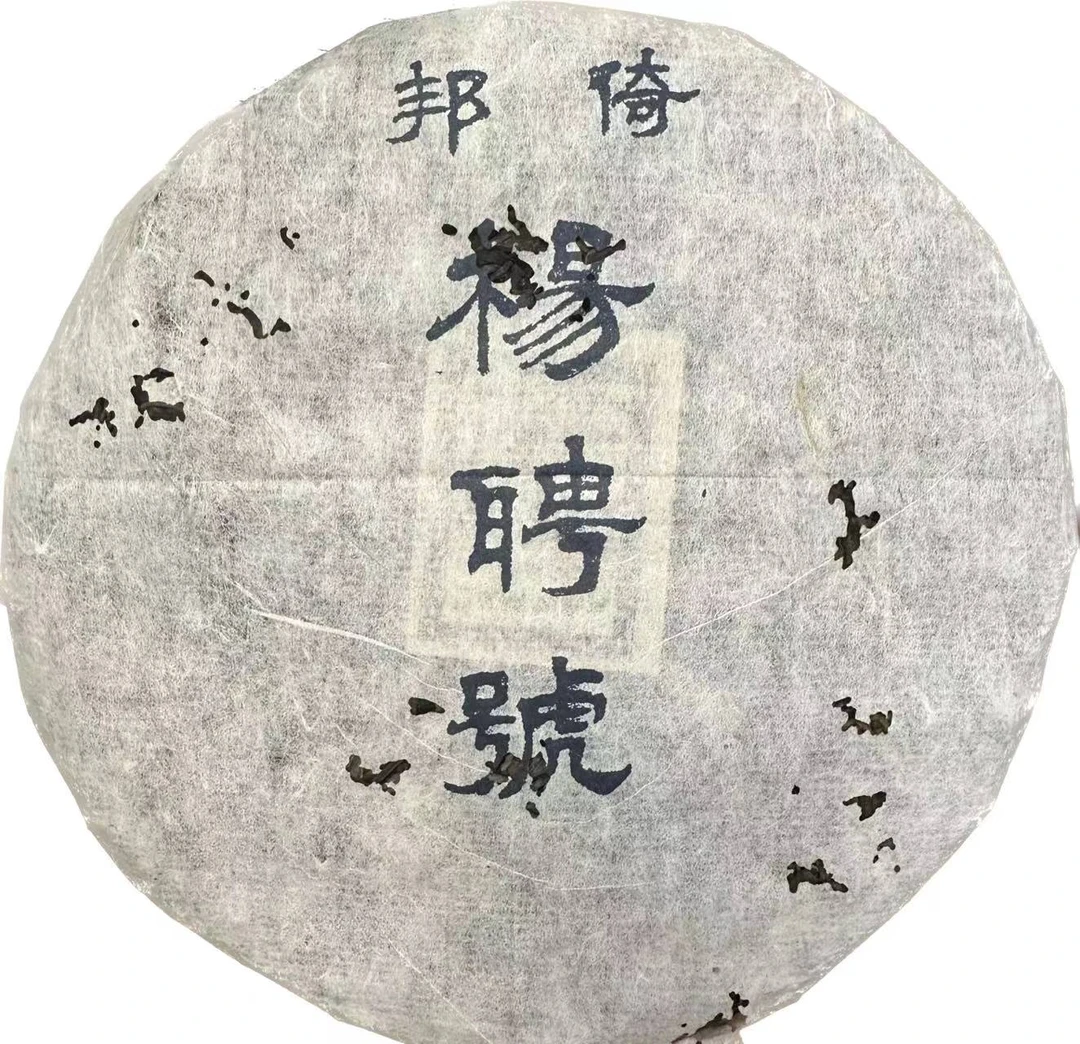 倚邦
楊聘號